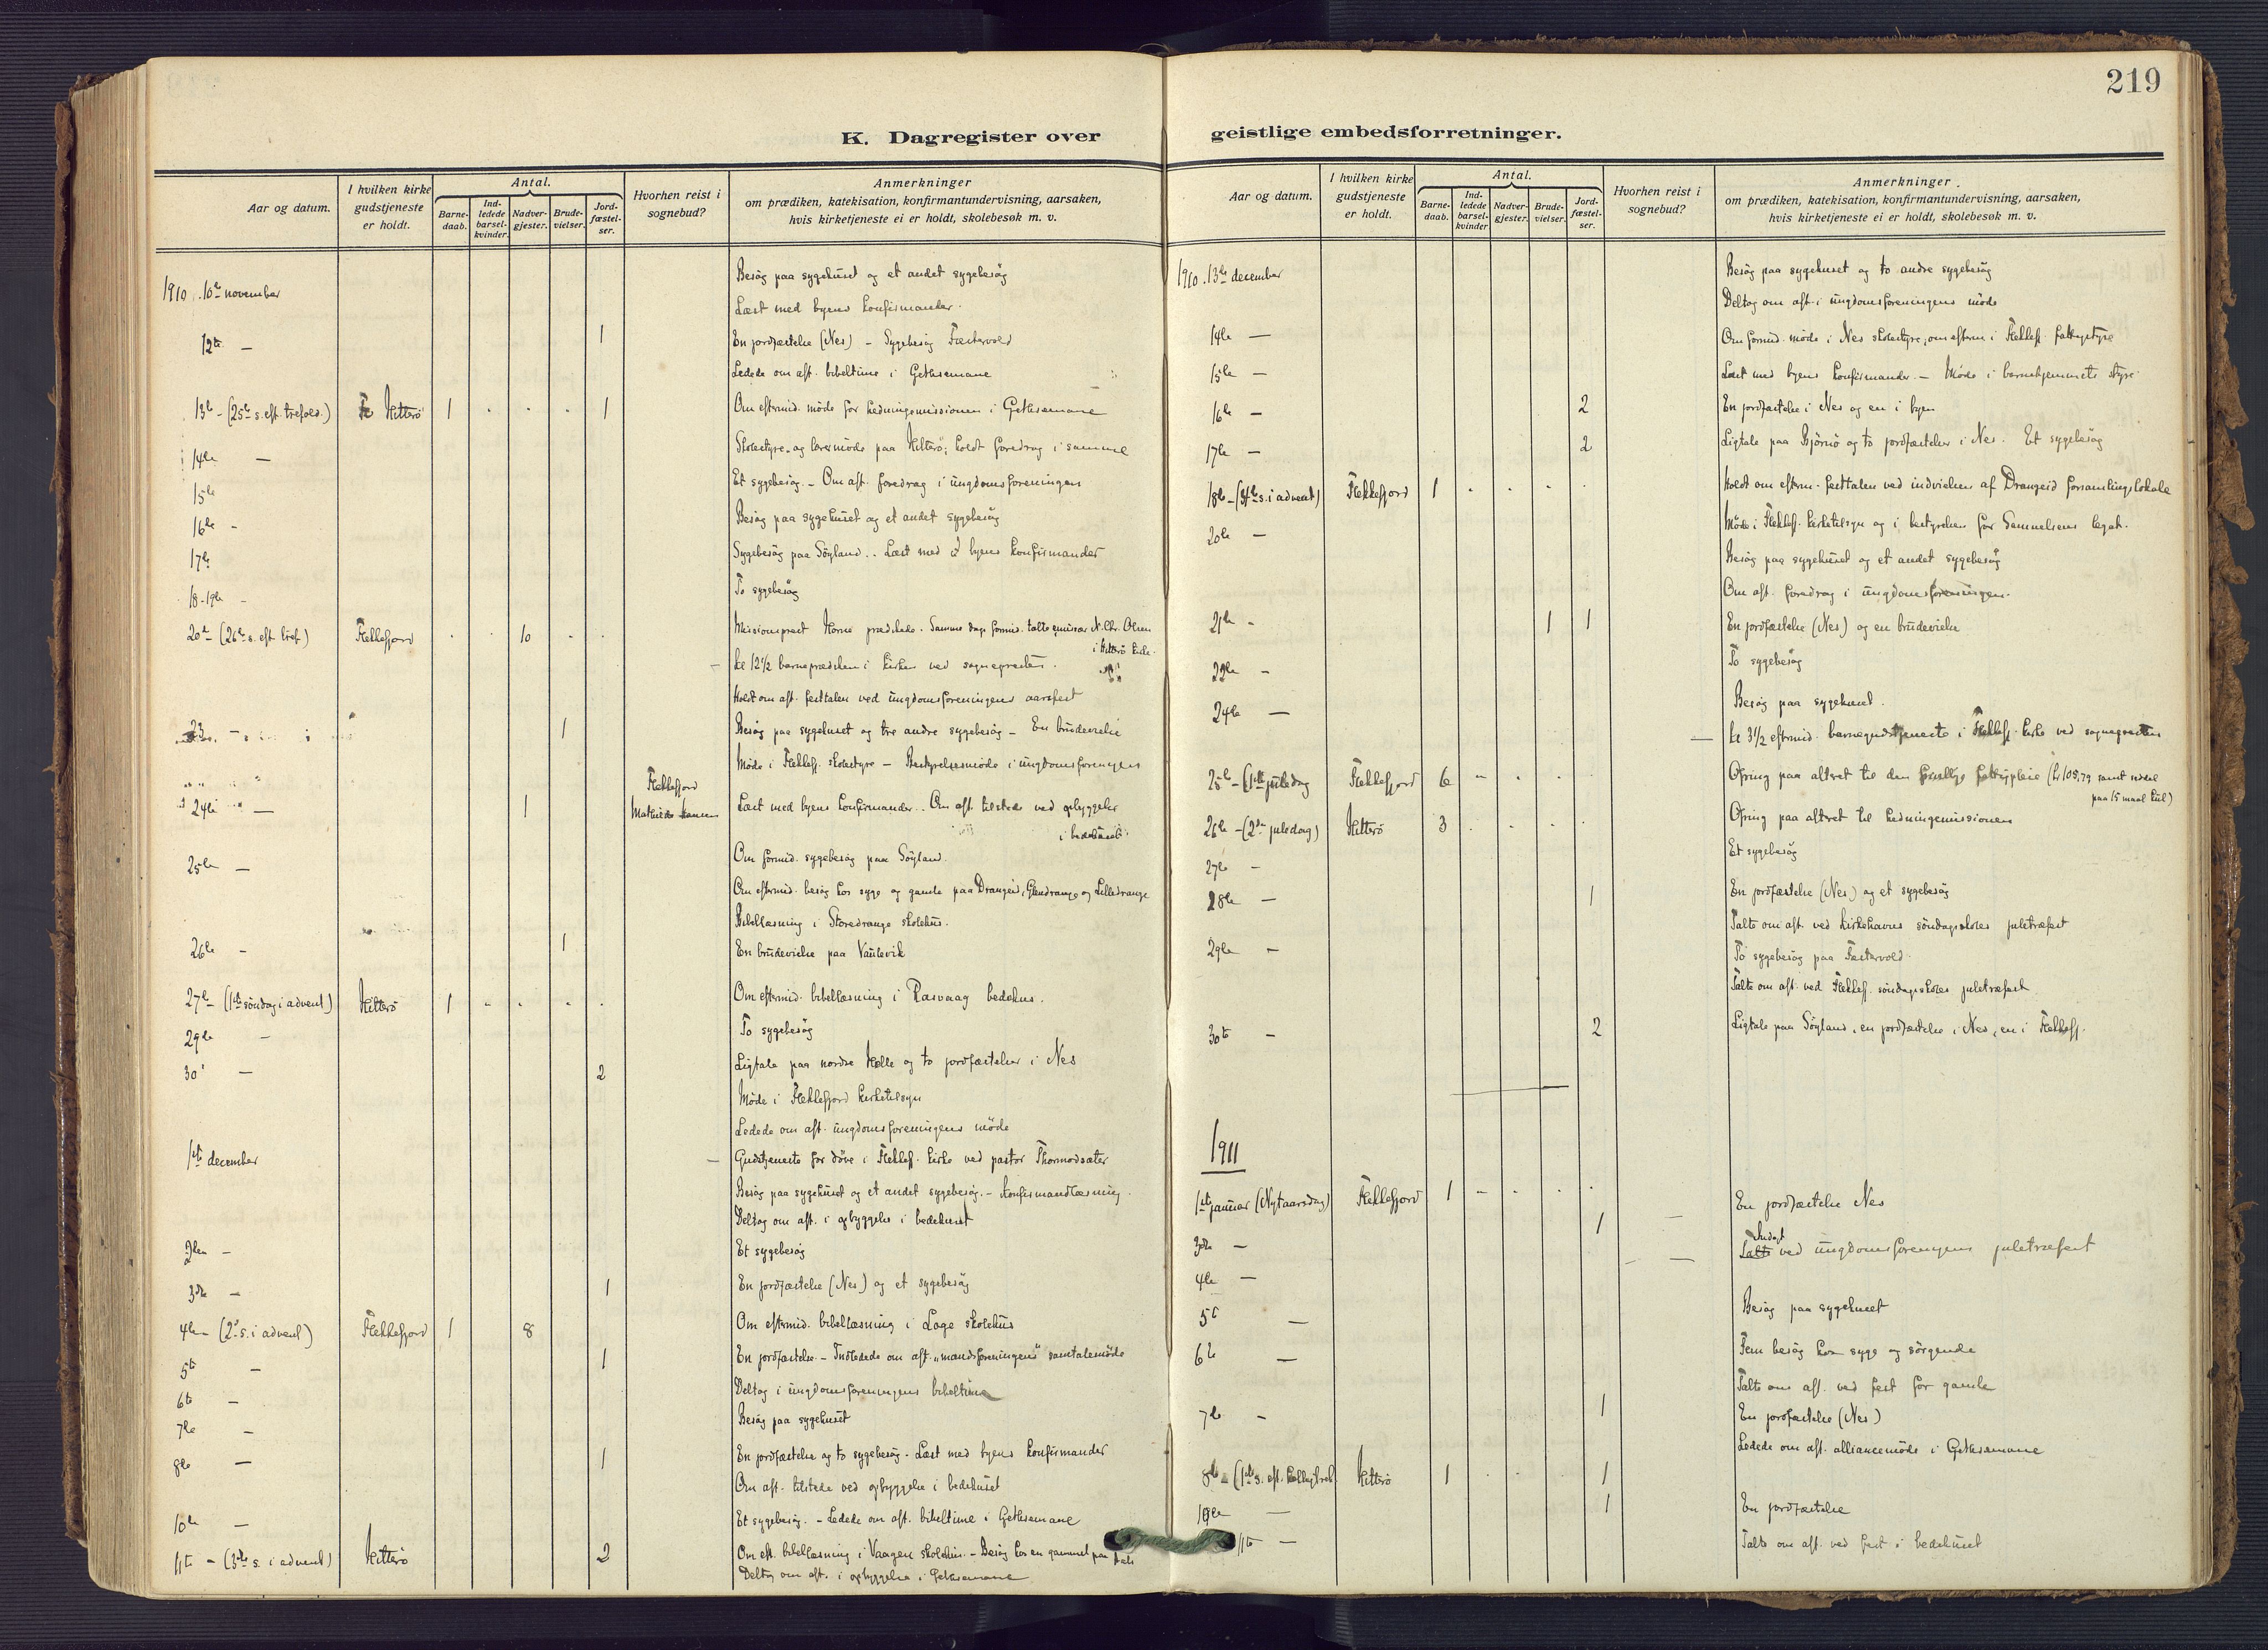 219
K. Dagregister over geistlige embedsforretninger.
Aar og datum.
I hvilken kirke gudstjeneste er holdt.
Antal.
Barne-daab.
Ind-ledede barsel-kvinder.
Nadver-gjester.
Brude-vielser.
Jord-fæstel-ser.
Hvorhen reist i sognebud?
Anmerkninger
om prædiken, katekisation, konfirmantundervisning, aarsaken,
hvis kirketjeneste ei er holdt, skolebesøk m. v.
1910. 10de november Besög paa sygehuset og et andet sygebesög
Læst med byens konfirmander.
12te — 1 En jordfæstelse (Nes) – Sygebesög Fæstervold
Ledede om aft. bibeltime i Gethsemane
13de – (25de s. eft. trefold.) Hitterö 1 . . . 1 Om eftermid. möde for hedningemissionen i Gethsemane
14de — Skolestyre- og lærermöde paa Hitterö; holdt foredrag i samme
15de Et sygebesög. – Om aft. foredrag i ungdomsforeningen
16de – Besög paa sygehuset og et andet sygebesög
17de Sygebesög paa Söyland.. Læst med byens konfirmander
18-19de – To sygebesög
20de – (26de s. eft. tref.) Flekkefjord . . 10 . . Missionsprest Horne prædikede. Samme dags formid. talte emissær N. Chr. Olsen
i Hitterö kirke.
kl 12½ barneprædiken i kirken ved sognepresten.
Holdt om aft. festtalen ved ungdomsforeningens aarsfest
23. – 1 Besög paa sygehuset og tre andre sygebesög – En brudevielse
Möde i Flekkefj. skolestyre – Bestyrelsesmöde i ungdomsforeningen
24de — 1 Flekkefjord Mathilde Hansen Læst med byens konfirmander.. Om aft. tilstede ved opbyggelse
i bedehuset.
25de — Om formid. sygebesög paa Söyland.
Om eftermid. besög hos syge og gamle paa Drangeid, Glendrange og Lilledrange
Bibellæsning i Storedrange skolehus.
26de – 1 En brudevielse paa Vaulevik
27de – (1ste söndag i advent) Hitterö 1 . . . . Om eftermid. bibellæsning i Rasvaag bedehus.
29de – To sygebesög
30 — 2 Ligtale paa nordre Helle og to jordfæstelser i Nes
Möde i Flekkefjord kirketilsyn
Ledede om aft. ungdomsforeningens möde
1ste december – Gudstjeneste for döve i Flekkefj. kirke ved pastor Thormodsæter
Besög paa sygehuset og et andet sygebesög. – Konfirmandlæsning.
Deltog om aft. i opbyggelse i bedehuset
2den – Et sygebesög
3die – 1 En jordfæstelse (Nes) og et sygebesög
4de – (2. s. i advent) Flekkefjord 1 8 Om eftermid. bibellæsning i Loge skolehus
5te – 1 En jordfæstelse. – Indledede om aft. „mandsforeningens" samtalemöde
6te – Deltog i ungdomsforeningens bibeltime
7de – Besög paa sygehuset
8de — 1 En jordfæstelse og to sygebesög. Læst med byens konfirmander
Om aft. tilstede ved opbyggelse i bedehuset
10de — Et sygebesög. – Ledede om aft. bibeltime i Gethsemane
11te – (3die s. i advent) Hitterö 2 Om eft. bibellæsning i Vaagen skolehus. – Besög hos en gammel paa
Deltog om aft. i opbyggelse i Gethsemane
Aar og datum.
I hvilken kirke gudstjeneste er holdt.
Antal.
Barne-daab.
Ind-ledede barsel-kvinder
Nadver-gjester.
Brude-vielser.
Jord-fæstel-ser.
Hvorhen reist i sognebud?
Anmerkninger.
om prædiken, katekisation, konfirmantundervisning, aarsaken,
hvis kirketjeneste ei er holdt, skolebesøk m. v.
1910. 13de december Besög paa sygehuset og to andre sygebesög
Deltog om aft. i ungdomsforeningens möde
14de — Om formid. möde i Nes skolestyre, om efterm i Flekkefj. fattigstyre
15de – Læst med byens konfirmander. – Möde i barnehjemmets styre
16de – 2 En jordfæstelse i Nes og en i byen
17de – 2 Ligtale paa Björnö og to jordfæstelser i Nes. Et sygebesög
18de – (4de s. i advent) Flekkefjord 1 . . . . Holdt om efterm. festtalen ved indvielsen af Drangeid forsamlingslokale
20de – Möde i Flekkefj. kirketilsyn og i bestyrelsen for Samuelsens legat.
Besög paa sygehuset og et andet sygebesög
Om aft. foredrag i ungdomsforeningen.
21de – 1 1 En jordfæstelse (Nes) og en brudevielse
22de – To sygebesög
24de — Besög paa sygehuset.
— kl 3½ eftermid. barnegudstjeneste i Flekkefj. kirke ved sognepresten
25de – (1ste juledag Flekkefjord 6 – . . Ofring paa altret til den frivillige fattigpleie (kr 105,79 samt
paa 15 maal kul)
26de – (2den juledag) Hitterö 3 . . . . Ofring paa altret til hedningemissionen
27de – Et sygebesög
28de — 1 En jordfæstelse (Nes) og et sygebesög
Talte om aft. ved Kirkehavns söndagsskoles juletræfest
29de – To sygebesög paa Fæstervold
Talte om aft. ved Flekkefj. söndagsskoles juletræfest
30te – 2 Ligtale paa Söyland, en jordfæstelse i Nes, en i Flekkefj.
1911
1ste januar (Nytaarsdag) Flekkefjord 1 – . . .
1 — En jordfæstelse Nes
3die – — Andagt
Talte ved ungdomsforeningens juletræfest
4de —
5te — Besög paa sygehuset
6te — Fem besög hos syge og sörgende
Talte om aft. ved fest for gamle
7de – 1 En jordfæstelse (Nes)
Ledede om aft. alliancemöde i Gethsemane
8de – (1ste s. eft. Hitterö 1 . . . 1
— 1 En jordfæstelse
11te — Talte om aft. ved fest i bedehuset